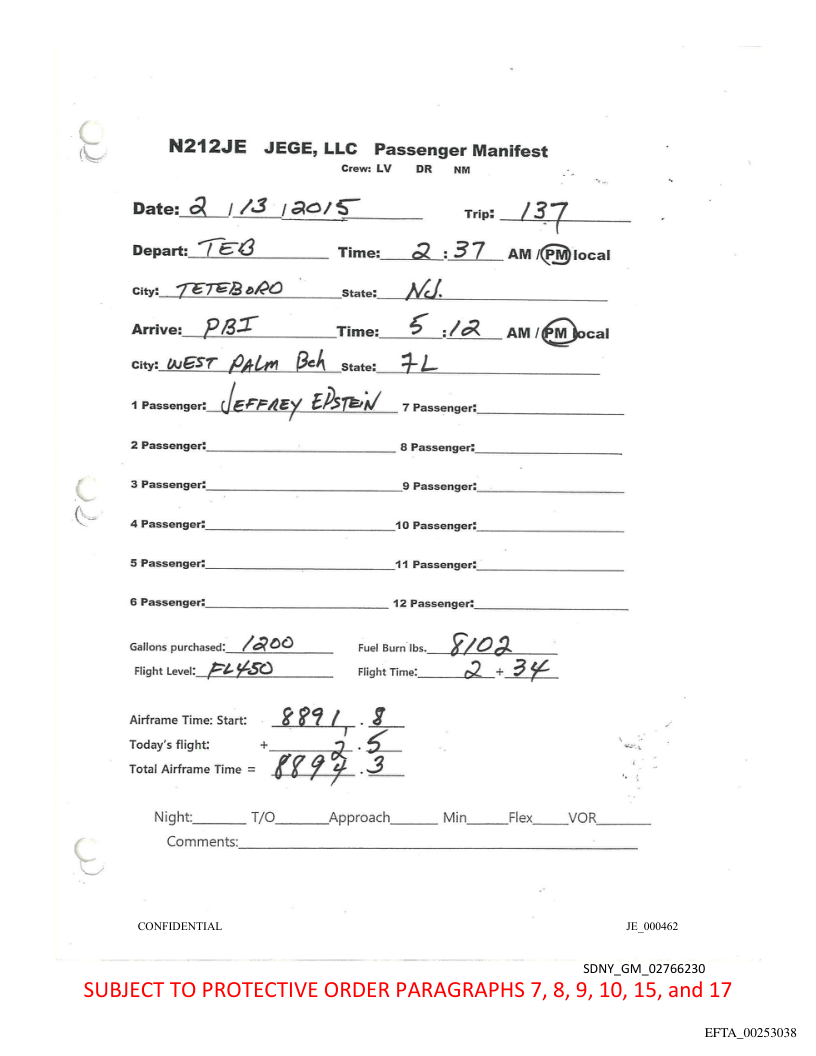 N212JE JEGE, LLC Passenger Manifest
Crew: LV DR NM
Date: 2 / 13 / 2015 Trip: 137
Depart: TEB Time: 2 : 37 AM / PM local
City: TETEBORO State: NJ.
Arrive: PBI Time: 5 : 12 AM / PM local
City: WEST PALM Bch State: FL
1 Passenger: JEFFREY EPSTEIN 7 Passenger:
2 Passenger: 8 Passenger:
3 Passenger: 9 Passenger:
4 Passenger: 10 Passenger:
5 Passenger: 11 Passenger:
6 Passenger: 12 Passenger:
Gallons purchased: 1200 Fuel Burn lbs. 8102
Flight Level: FL450 Flight Time: 2 + 34
Airframe Time: Start: 8891 . 8
Today's flight: + 2 . 5
Total Airframe Time = 8894 . 3
Night: T/O Approach Min Flex VOR
Comments:
CONFIDENTIAL JE_000462
SDNY_GM_02766230
SUBJECT TO PROTECTIVE ORDER PARAGRAPHS 7, 8, 9, 10, 15, and 17
EFTA_00253038